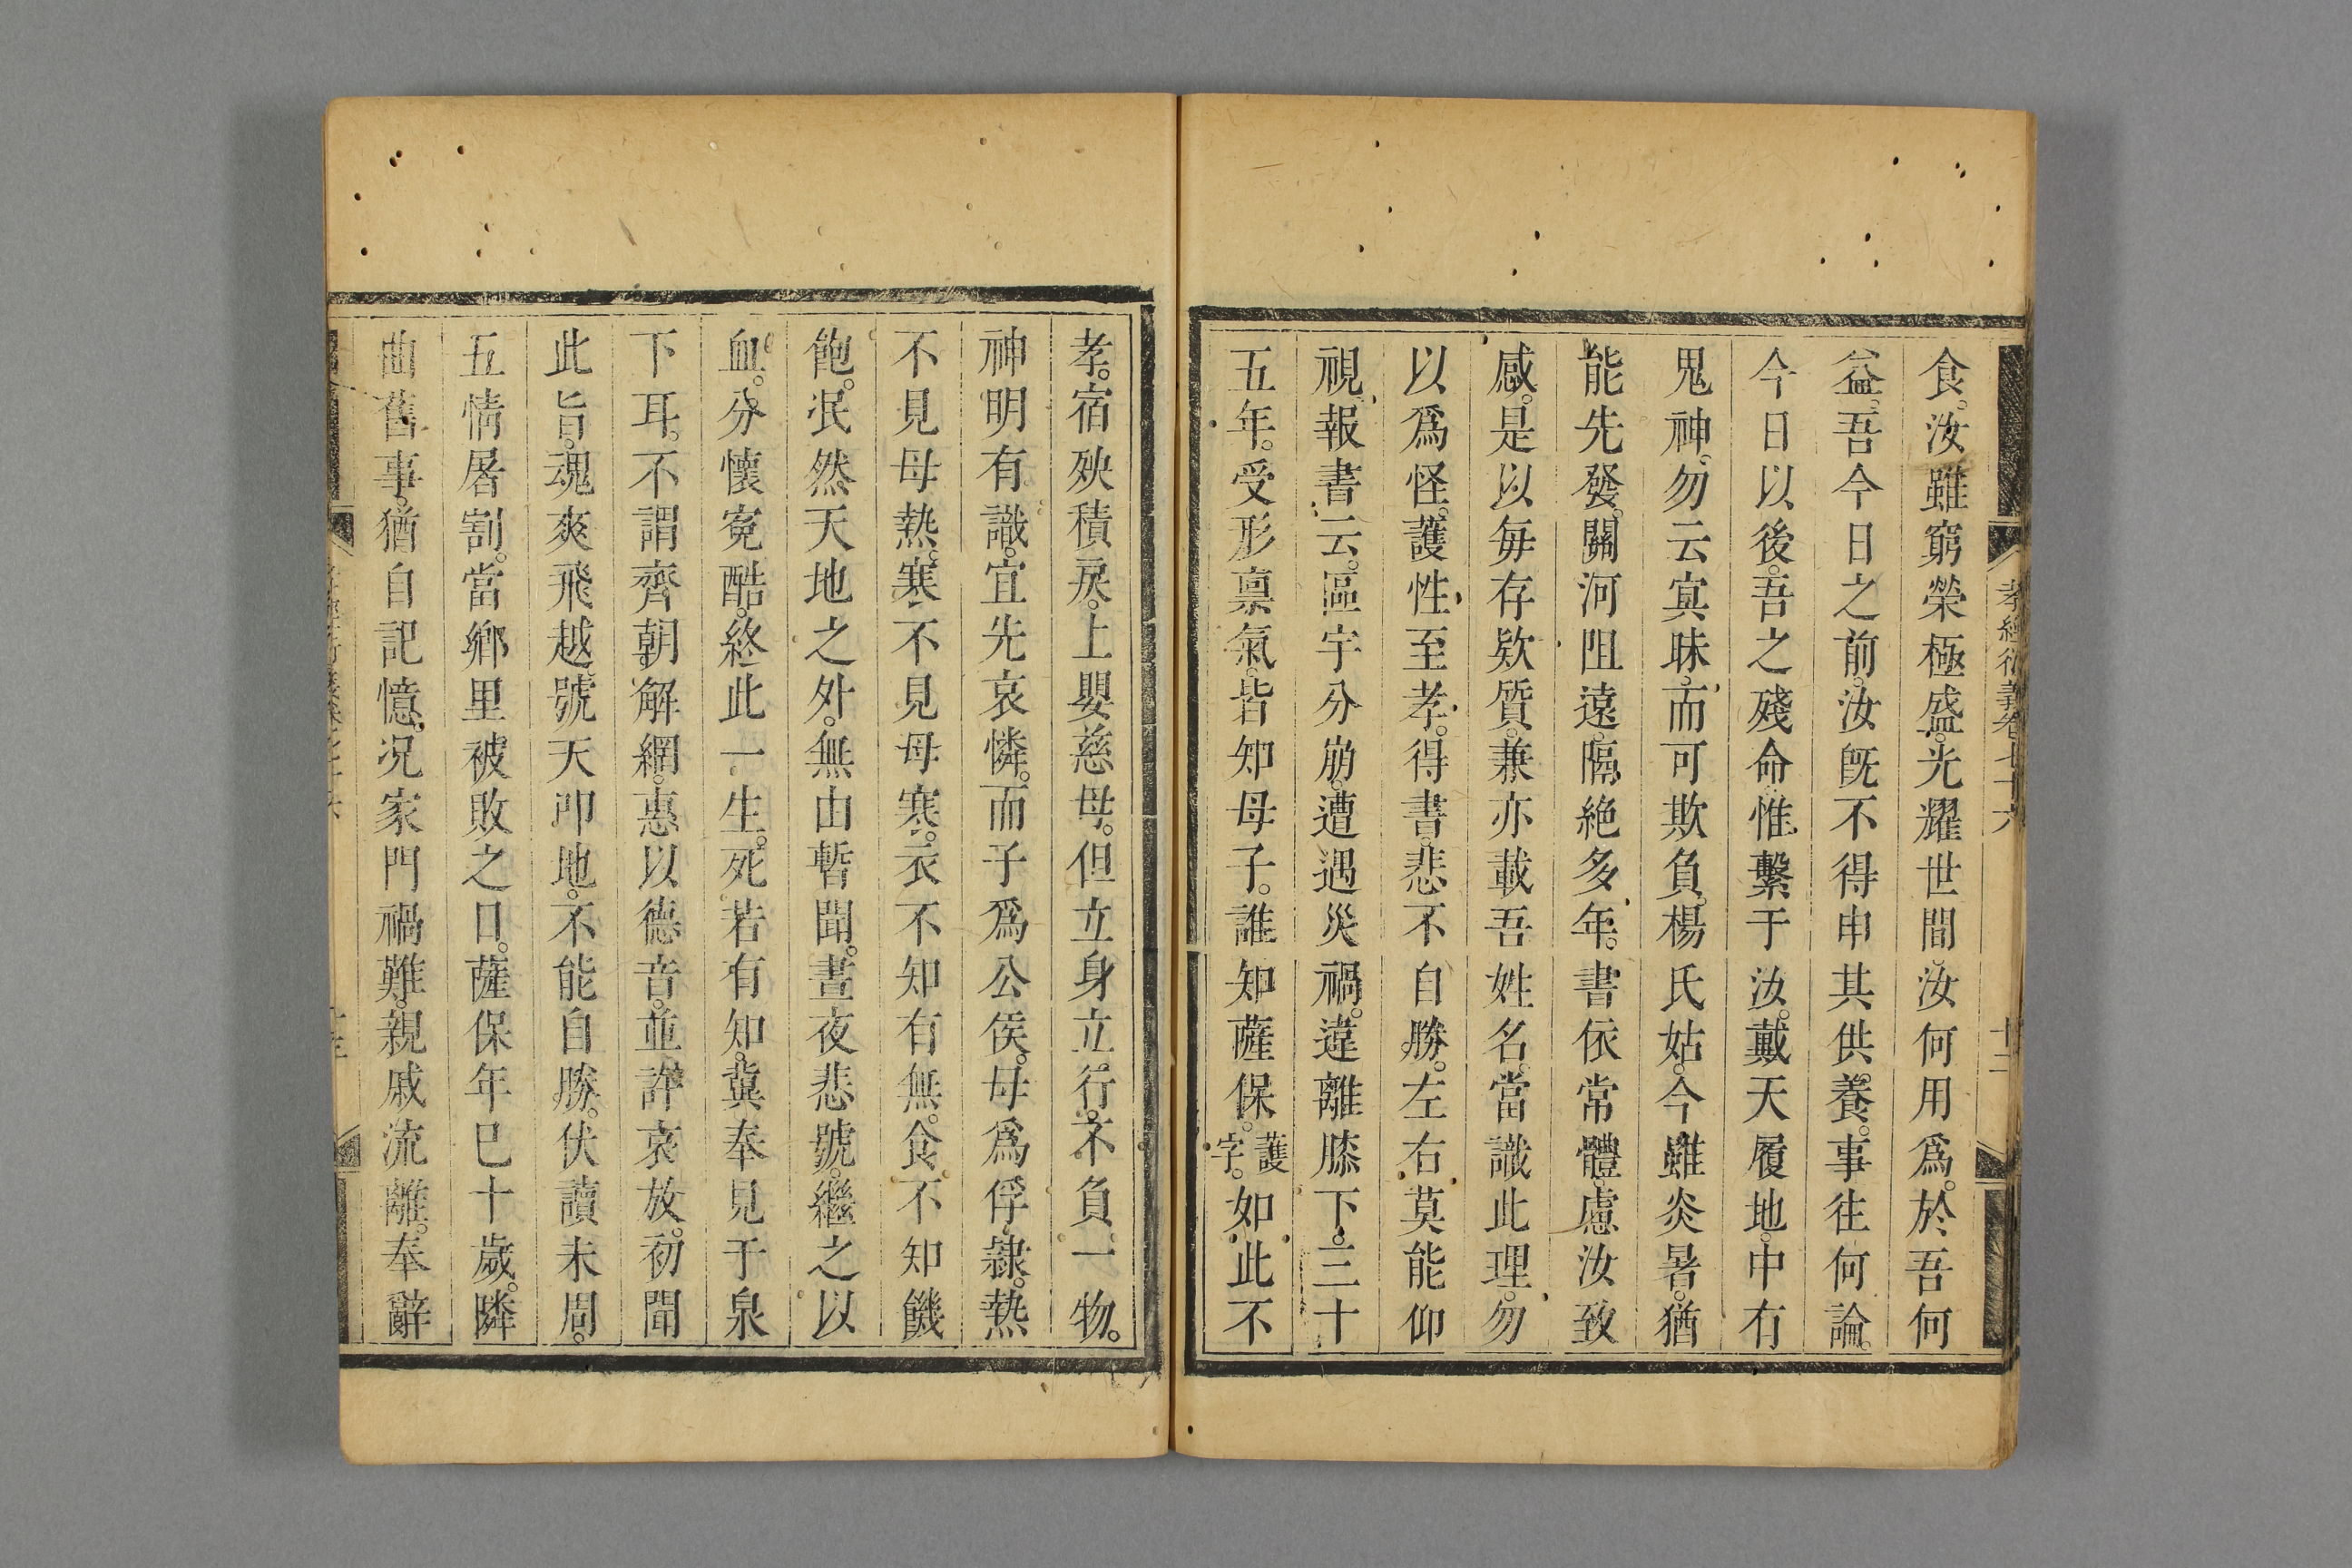 孝經衍義卷七十六
十二
食。汝雖窮榮極盛。光耀世間。汝何用爲。於吾何
益。吾今日之前。汝旣不得申其供養。事往何論。
今日以後。吾之殘命。惟繫于汝。戴天履地。中有
鬼神。勿云冥昧。而可欺負。楊氏姑。今雖炎暑。猶
能先發。關河阻遠。隔絶多年。書依常體。慮汝致
感。是以每存欵質。兼亦載吾姓名。當識此理。勿
以爲怪。護性至孝。得書。悲不自勝。左右莫能仰
視。報書云。區宇分崩。遭遇災禍。違離膝下。三十
五年。受形禀氣。皆知母子。誰知薩保。護字。如此不
孝。宿殃積戾。上嬰慈母。但立身立行。不負一物。
神明有識。宜先哀憐。而子爲公侯。母爲俘隷。熱
不見母熱。寒不見母寒。衣不知有無。食不知饑
飽。泯然天地之外。無由暫聞。晝夜悲號。繼之以
血。分懷寃酷。終此一生。死若有知。冀奉見于泉
下耳。不謂齊朝。解網。惠以德音。並許哀放。初聞
此旨。魂爽飛越。號天叩地。不能自勝。伏讀未周。
五情屠割。當鄉里被敗之日。薩保年已十歲。隣
曲舊事。猶自記憶。况家門禍難。親戚流離。奉辭